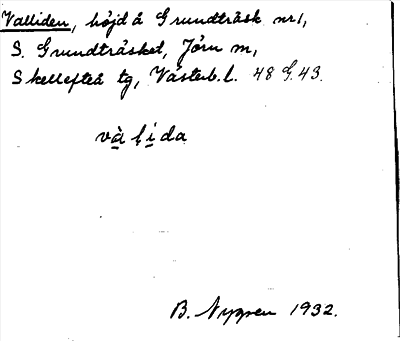 Valliden, höjd å Grundträsk nr 1,
S. Grundträsket, Jörn m,
Skellefteå tg, Västerb. l. 48 G. 43.
vàlida
B. Nygren 1932.